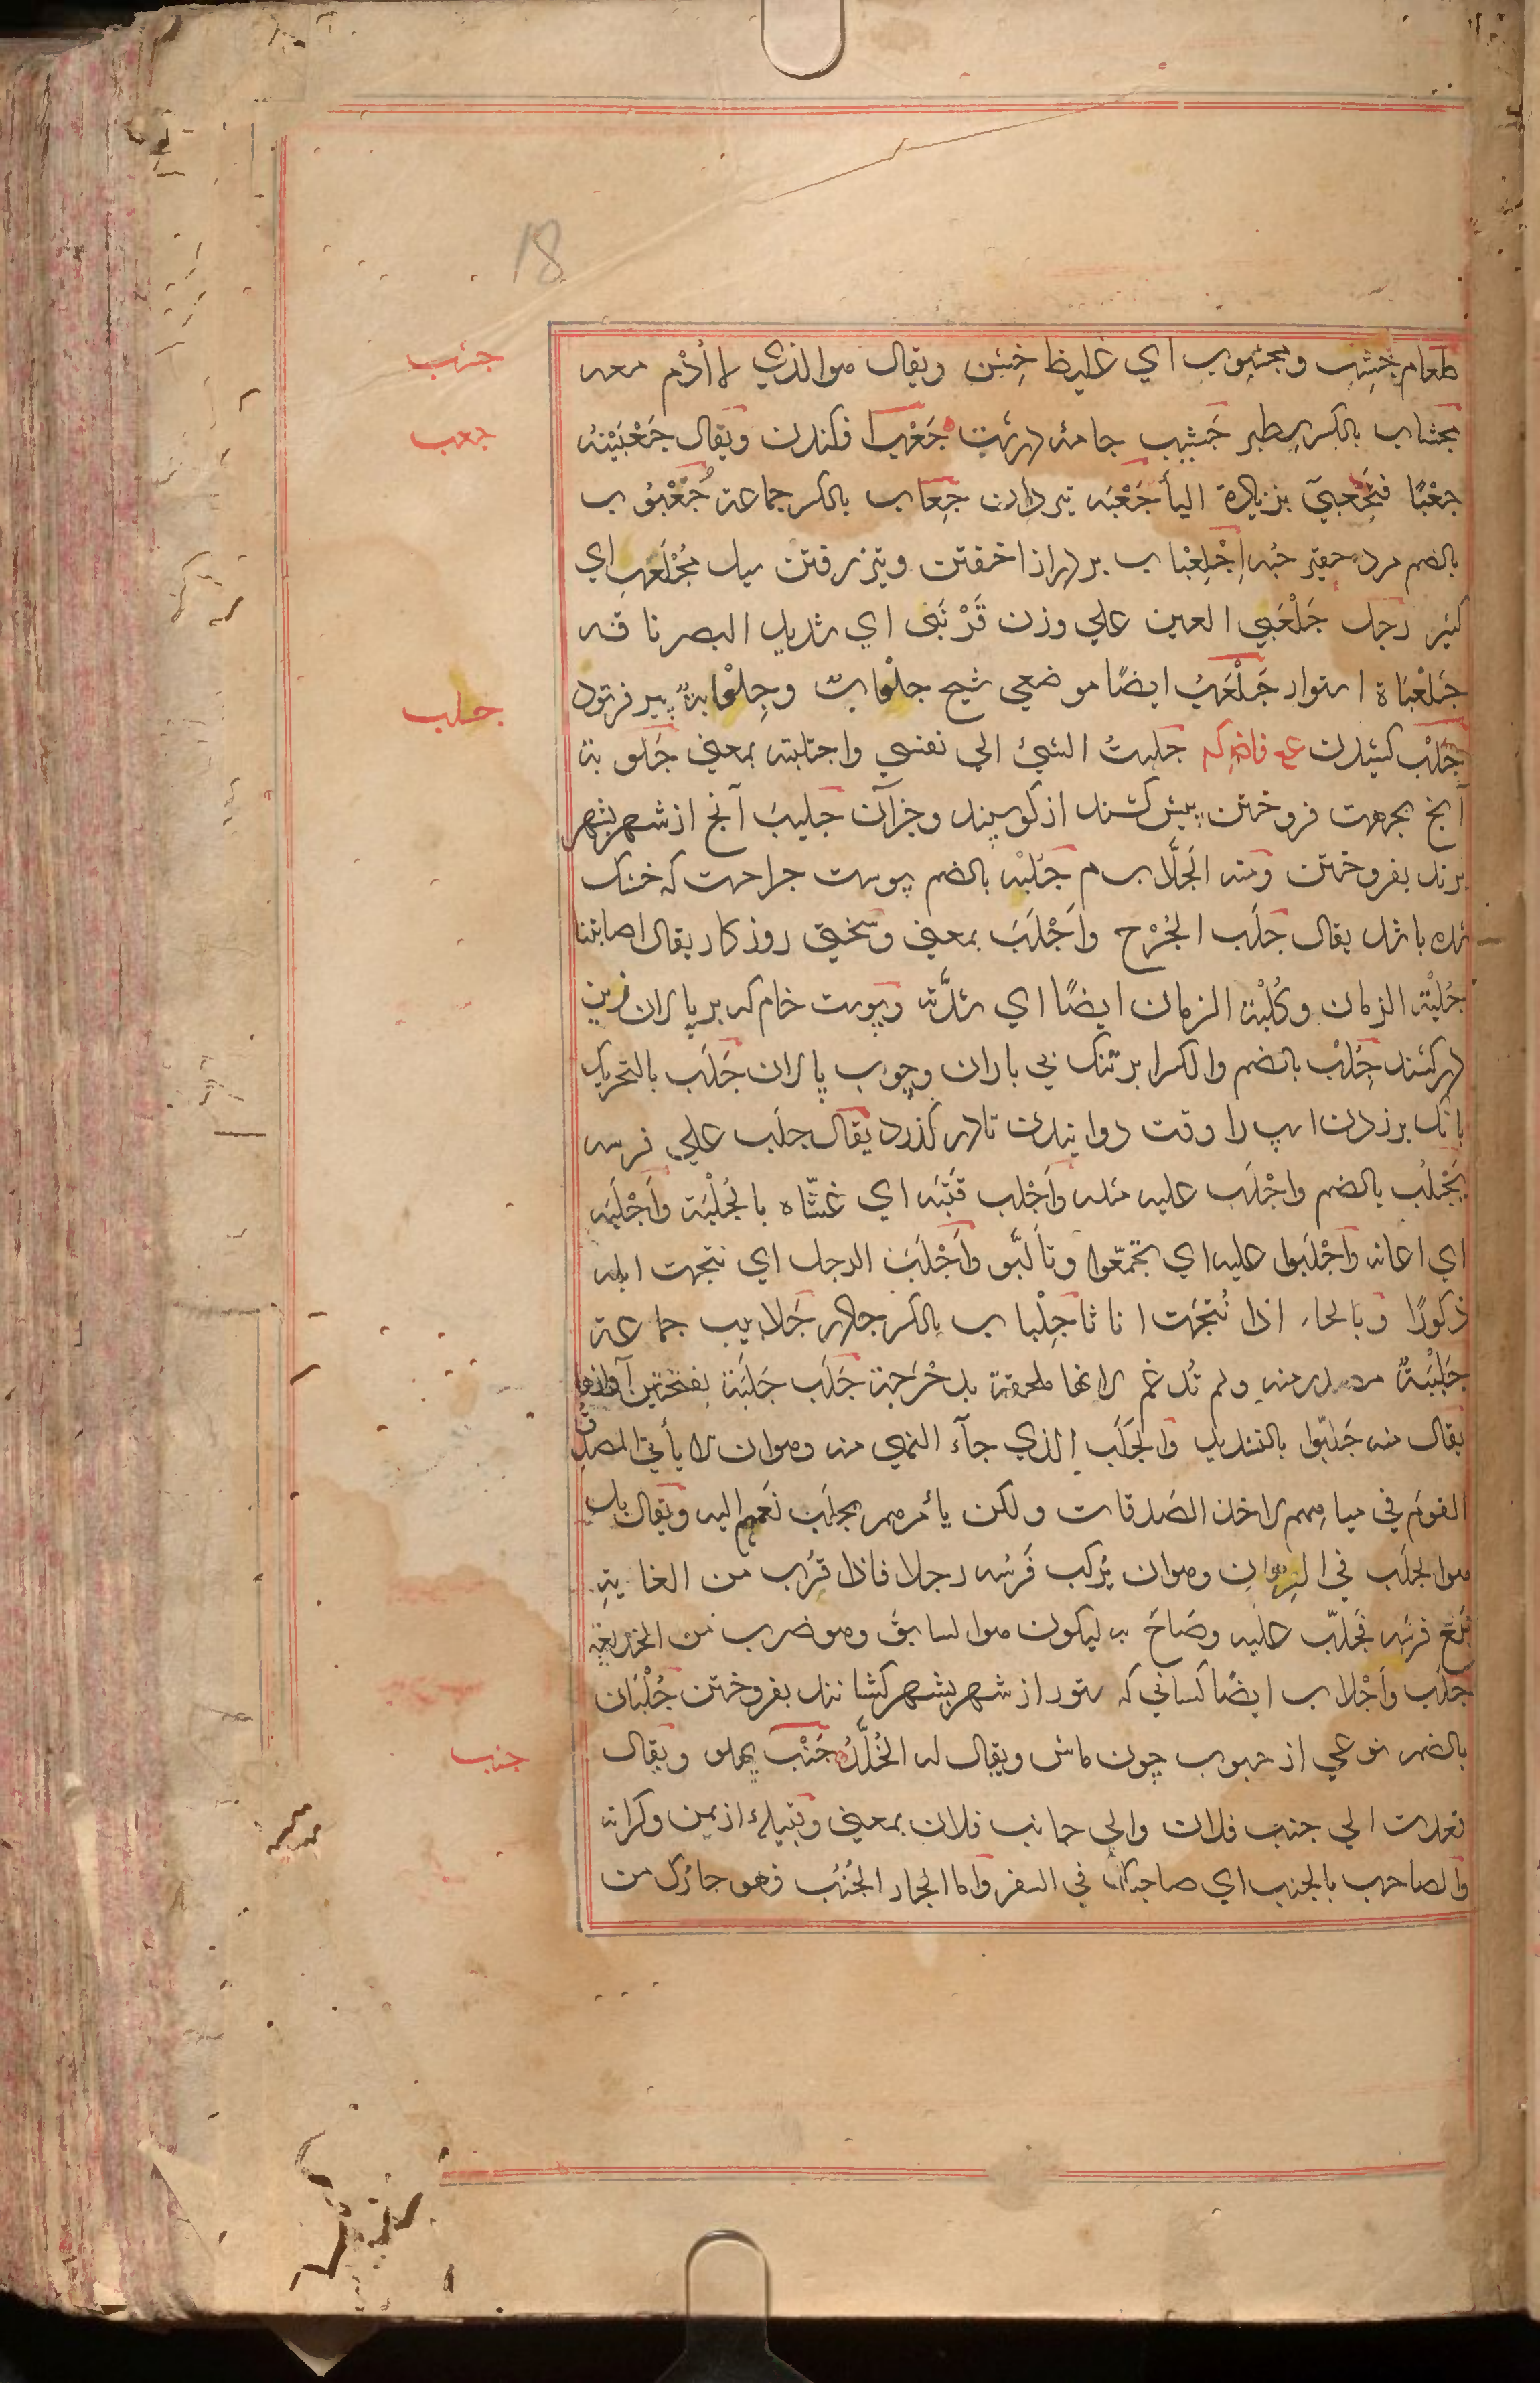 18
جشب
طعام جَشِب ومجشوب اي غليظ خشن ويقال هوالذي لا أُدْم معه
جعب
مجشاب بالكسر سطبر جَشِيب جامه درشت جَعْب افكندن ويقال جَعْبَيْتهُ
جعْبًا فتجعبيَ بزيادة اليأ جَعْبَه تيردان جِعاب بالكسر جماعة جُعْبُوب
بالضم مرد حقير جثه اِجْلِعْباب بر دراز اخفتن وتيز رفتن سيل مُجْلَعِب اي
كثير رجل جَلْعَبي العين علي وزن قَرْنَبَى اي شديد البصر ناقه
جَلَعْبَاة استوار جَلْعَبُ ايضًا موضعي شيخ جلْحاب وجِلْحابةٌ پير فرتود
جلب
جَلْب كشيدن جلبتُ الشئ الي نفسي واجتلبته بمعني جَلوبة
آنج بجهت فروختن پيش كشند از كوسپند وجزآن جَليبَ آنج از شهر بشهر
برند بفروختن ومنه الجَلَّاب م جُلْبَه بالضم پوست جراحت كه خشك
شده باشد يقال جلَب الجُرْح واَجْلَبَ بمعني وسختي روزكار يقال اصابتنا
جُلبْة الزمان وكُلبْة الزمان ايضًا اي شدَّته وپوست خام كه بر پالان زين
دركشند جُلِْب بالضم والكسر ابر تنك بي باران وچوب پالان جَلَب بالتحريك
بانك برزدن اسپ را وقت دوانيدن تا در كذرد يقال جلَب علي فرسه
يَجْلُب بالضم واجْلَبَ عليه مثله واَجْلب قَتَبَه اي غشّاه بالجُلْبَة واَجْلَبَه
اي اعانه واَجْلَبوا عليه اي تجمّعوا وتألَّبو واَجْلَبَ الرجل اي نتجت ابله
ذكورًا وبالحاء اذا نُتجَت اناثا جِلْباب بالكسر چادر جَلابيب جماعة
جَلْبَبَةٌ مصدر منه ولم تُدغم لانها ملحقة بدَحْرَجة جَلَب جَلَبَة بفتحتين آوازها
يقال منه جَلَبّوا بالتشديد والجَلَب الذي جآء النهي منه وهوان لا يأتي المصدّق
القومَ في مياههم لاخذ الصَدقات ولكن يأمرهم بجلب نَعَمهم اليه ويقال بل
هوالجلَب في الرهان وهوان يُركب فَرسَه رجلا فاذا قَرُب من الغاية
تبع فرسَه فجلّب عليه وصَاحَ به ليكون هوالسابقَ وهو ضرب من الخديعة
جلَب واَجْلاب ايضًا كساني كه ستور از شهر بشهر كشانند بفروختن جُلْبَان
بالضم نوعي از حبوب چون ماش ويقال له الخُلَّرُ
جنب
جَنْب پهلو ويقال
قعدت الي جنب فلان والي جانب فلان بمعني وقبيلۀ از يمن وكرانه
والصاحب بالجنب اي صاحبك في السفر واما الجار الجُنُب فهو جارُك من